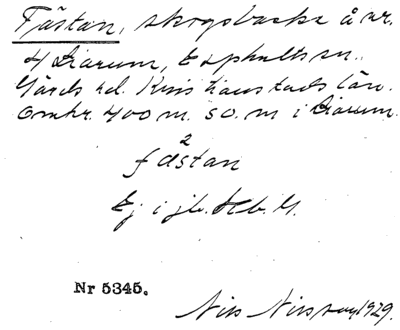 Fästan, skogsbacke å nr.
4 Diarum, Esphults sn.
Gärds hd. Kristianstads län.
Omkr. 400 m. SO. m i Diarum.
2
fästan
Ej i jb. Hb. G.
Nr 5345.
Nils Nilsson 1929.